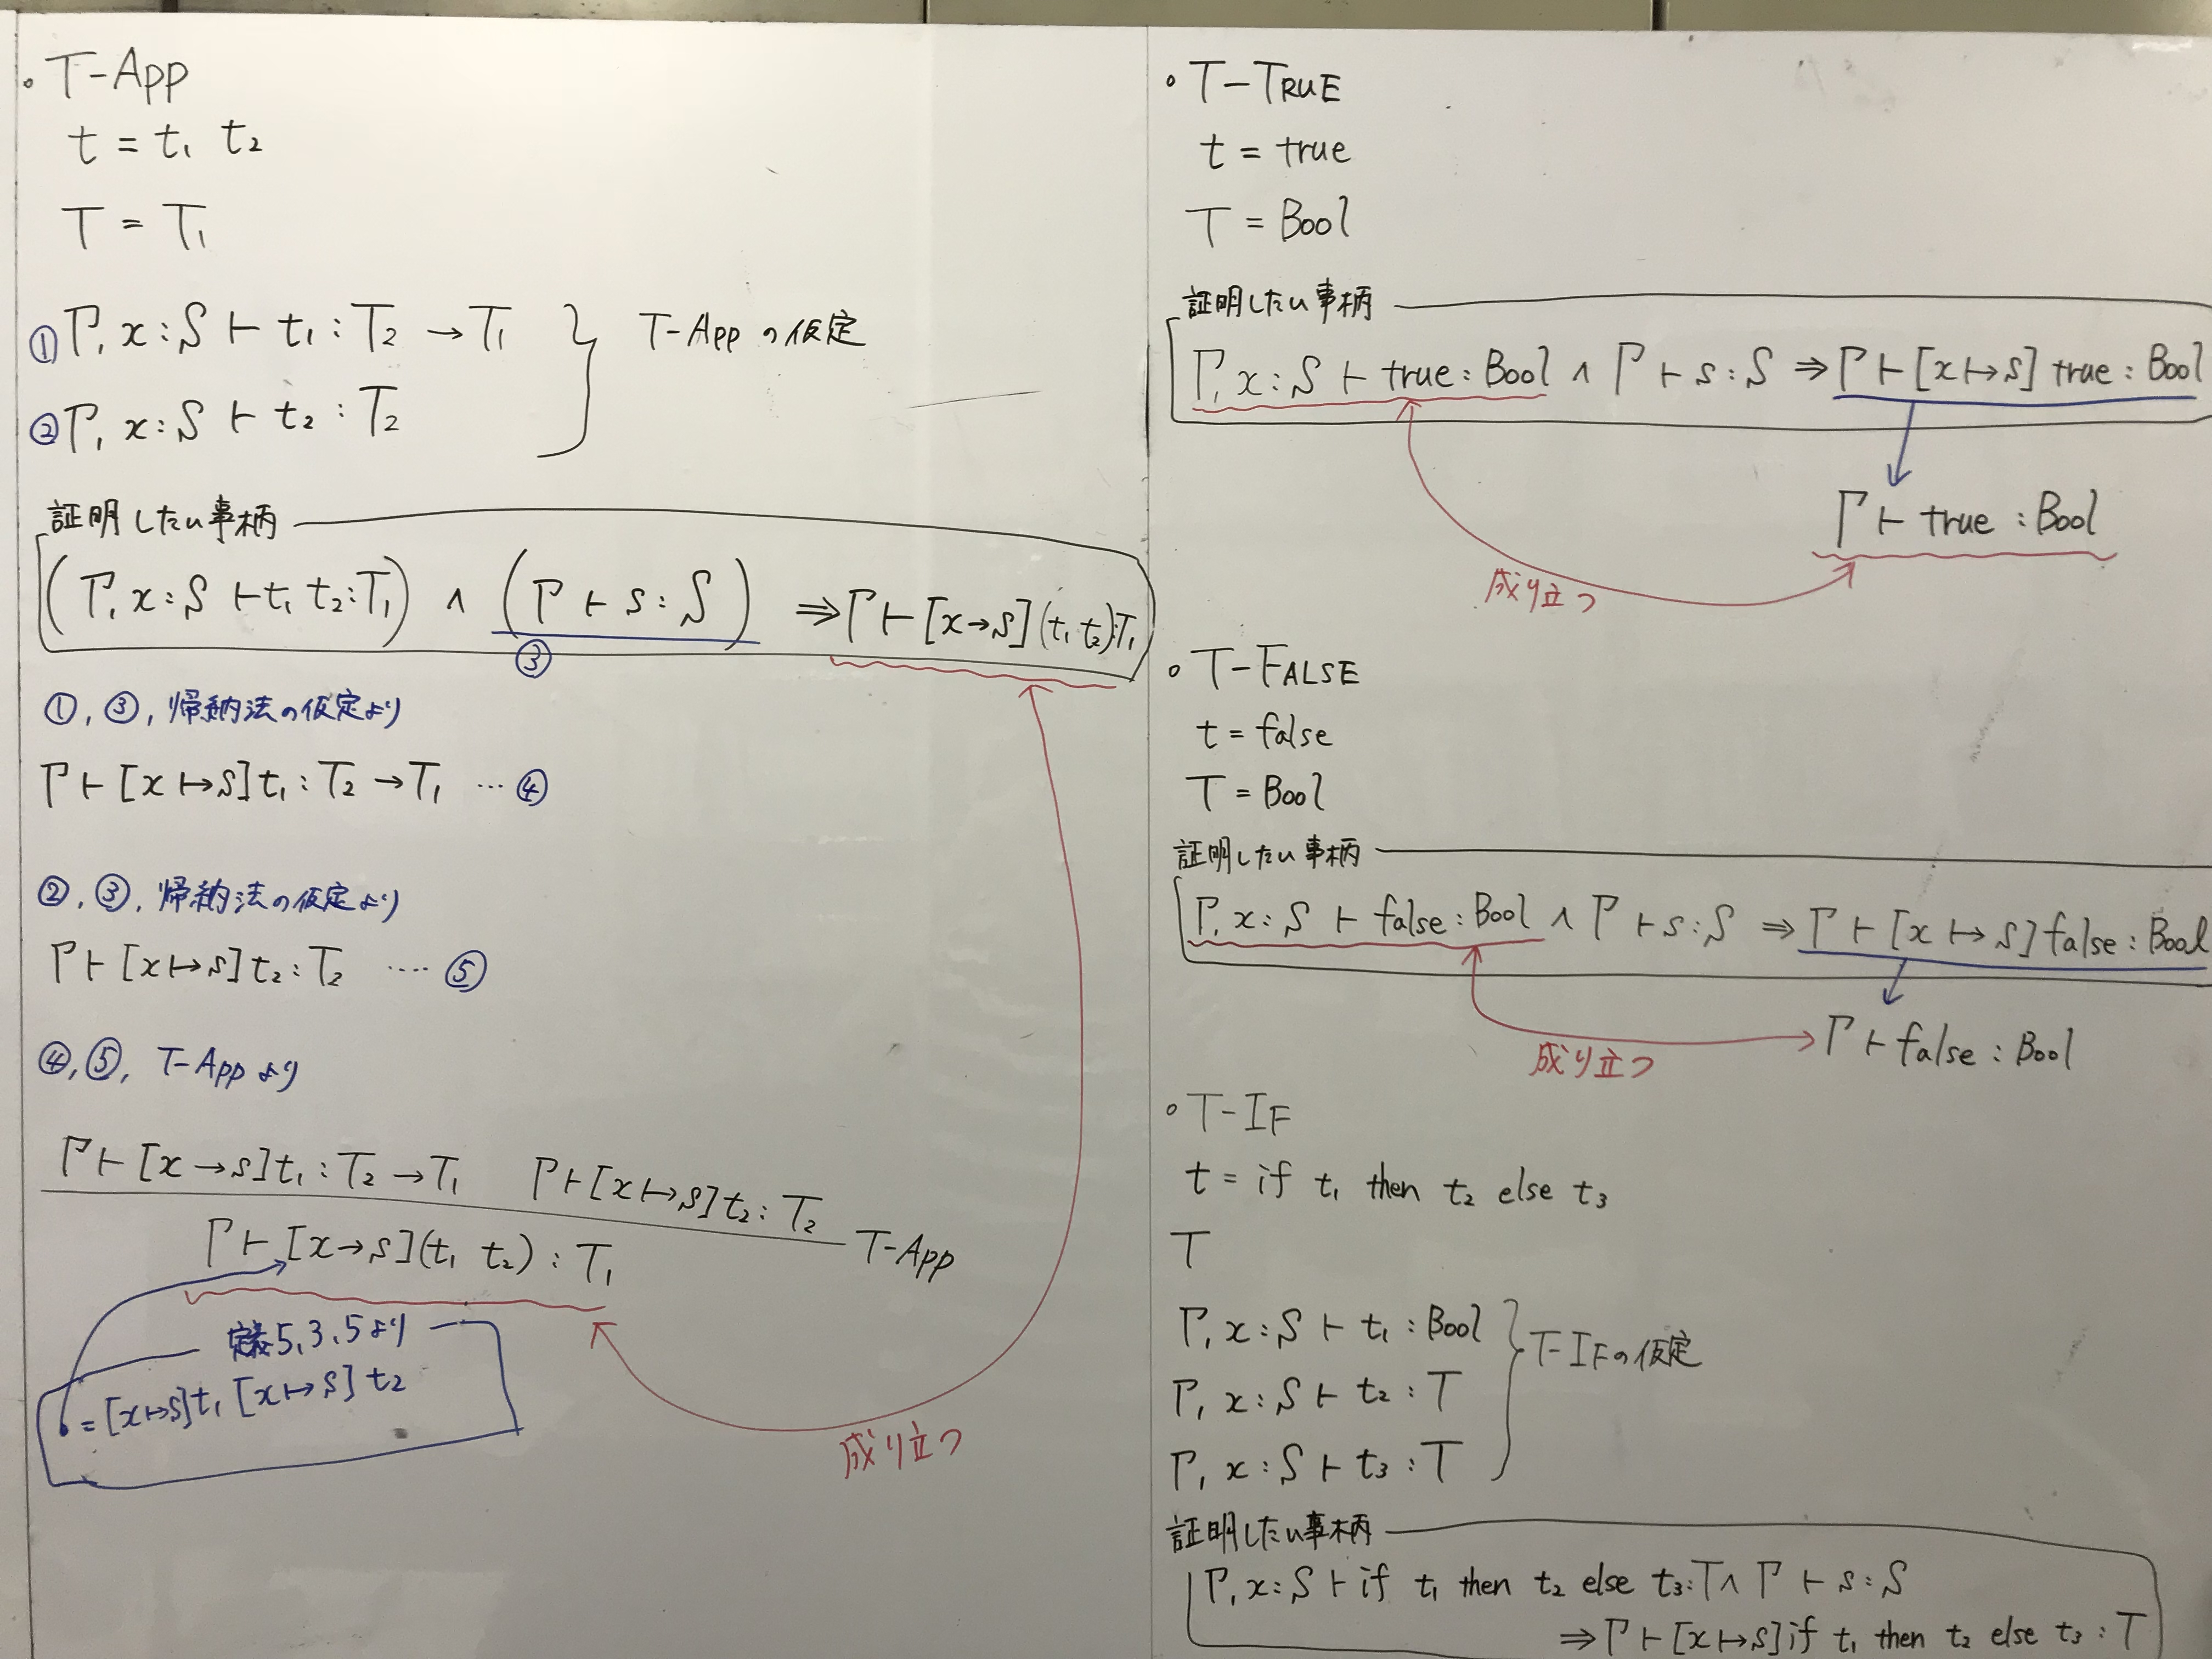 。T-App
t = t₁ t₂
T = T₁
①Γ, x:S ⊢ t₁ : T₂ → T₁
②Γ, x:S ⊢ t₂ : T₂
T-App の仮定
証明したい事柄
(Γ, x:S ⊢ t₁ t₂:T₁) ∧ (Γ ⊢ s:S) ⇒ Γ ⊢ [x→s](t₁ t₂):T₁
③
①, ③, 帰納法の仮定より
Γ ⊢ [x ↦ s]t₁ : T₂ → T₁ … ④
②, ③, 帰納法の仮定より
Γ ⊢ [x ↦ s]t₂ : T₂ …. ⑤
④, ⑤, T-App より
Γ ⊢ [x → s]t₁ : T₂ → T₁ Γ ⊢ [x ↦ s]t₂ : T₂
T-App
Γ ⊢ [x → s](t₁ t₂) : T₁
5.3.5より
= [x ↦ s]t₁ [x ↦ s]t₂
成り立つ
。T-TRUE
t = true
T = Bool
証明したい事柄
Γ, x:S ⊢ true:Bool ∧ Γ ⊢ s:S ⇒ Γ ⊢ [x ↦ s] true:Bool
Γ ⊢ true : Bool
成り立つ
。T-FALSE
t = false
T = Bool
証明したい事柄
Γ, x:S ⊢ false:Bool ∧ Γ ⊢ s:S ⇒ Γ ⊢ [x ↦ s]false:Bool
Γ ⊢ false : Bool
成り立つ
。T-IF
t = if t₁ then t₂ else t₃
T
Γ, x:S ⊢ t₁ : Bool
Γ, x:S ⊢ t₂ : T
Γ, x:S ⊢ t₃ : T
T-IFの仮定
証明したい事柄
Γ, x:S ⊢ if t₁ then t₂ else t₃:T ∧ Γ ⊢ s:S
⇒ Γ ⊢ [x ↦ s]if t₁ then t₂ else t₃ : T